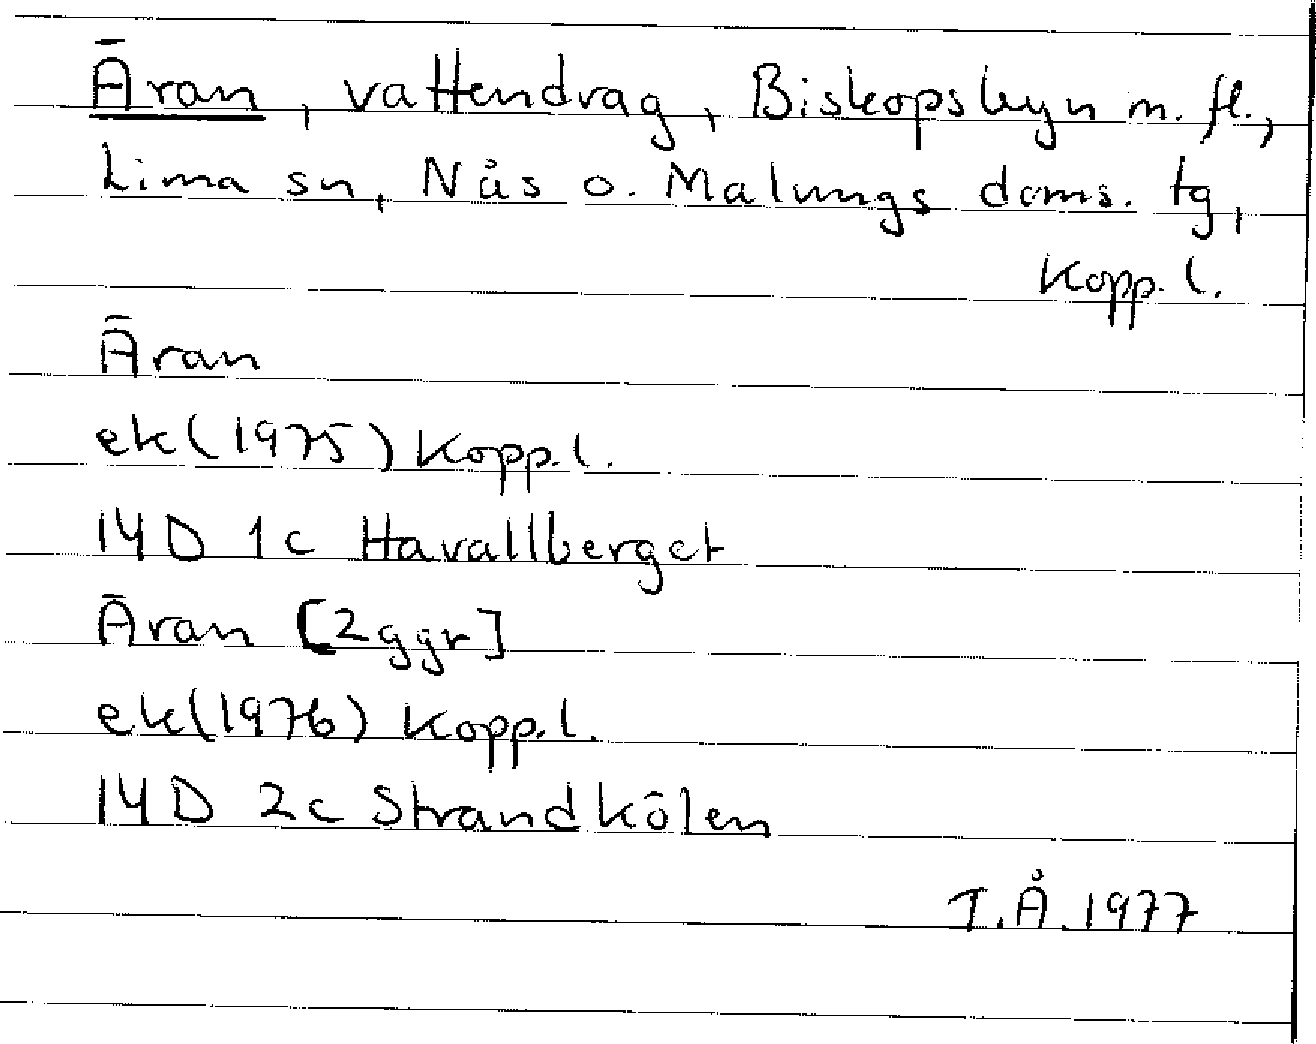 Äran, vattendrag, Biskopsbyn m. fl.,
Lima sn, Nås o. Malungs doms. tg,
Kopp. l.
Äran
ek(1975) Kopp. l.
14D 1c Havallberget
Äran [2ggr]
ek(1976) Kopp. l.
14D 2c Strandkölen
I.Å. 1977